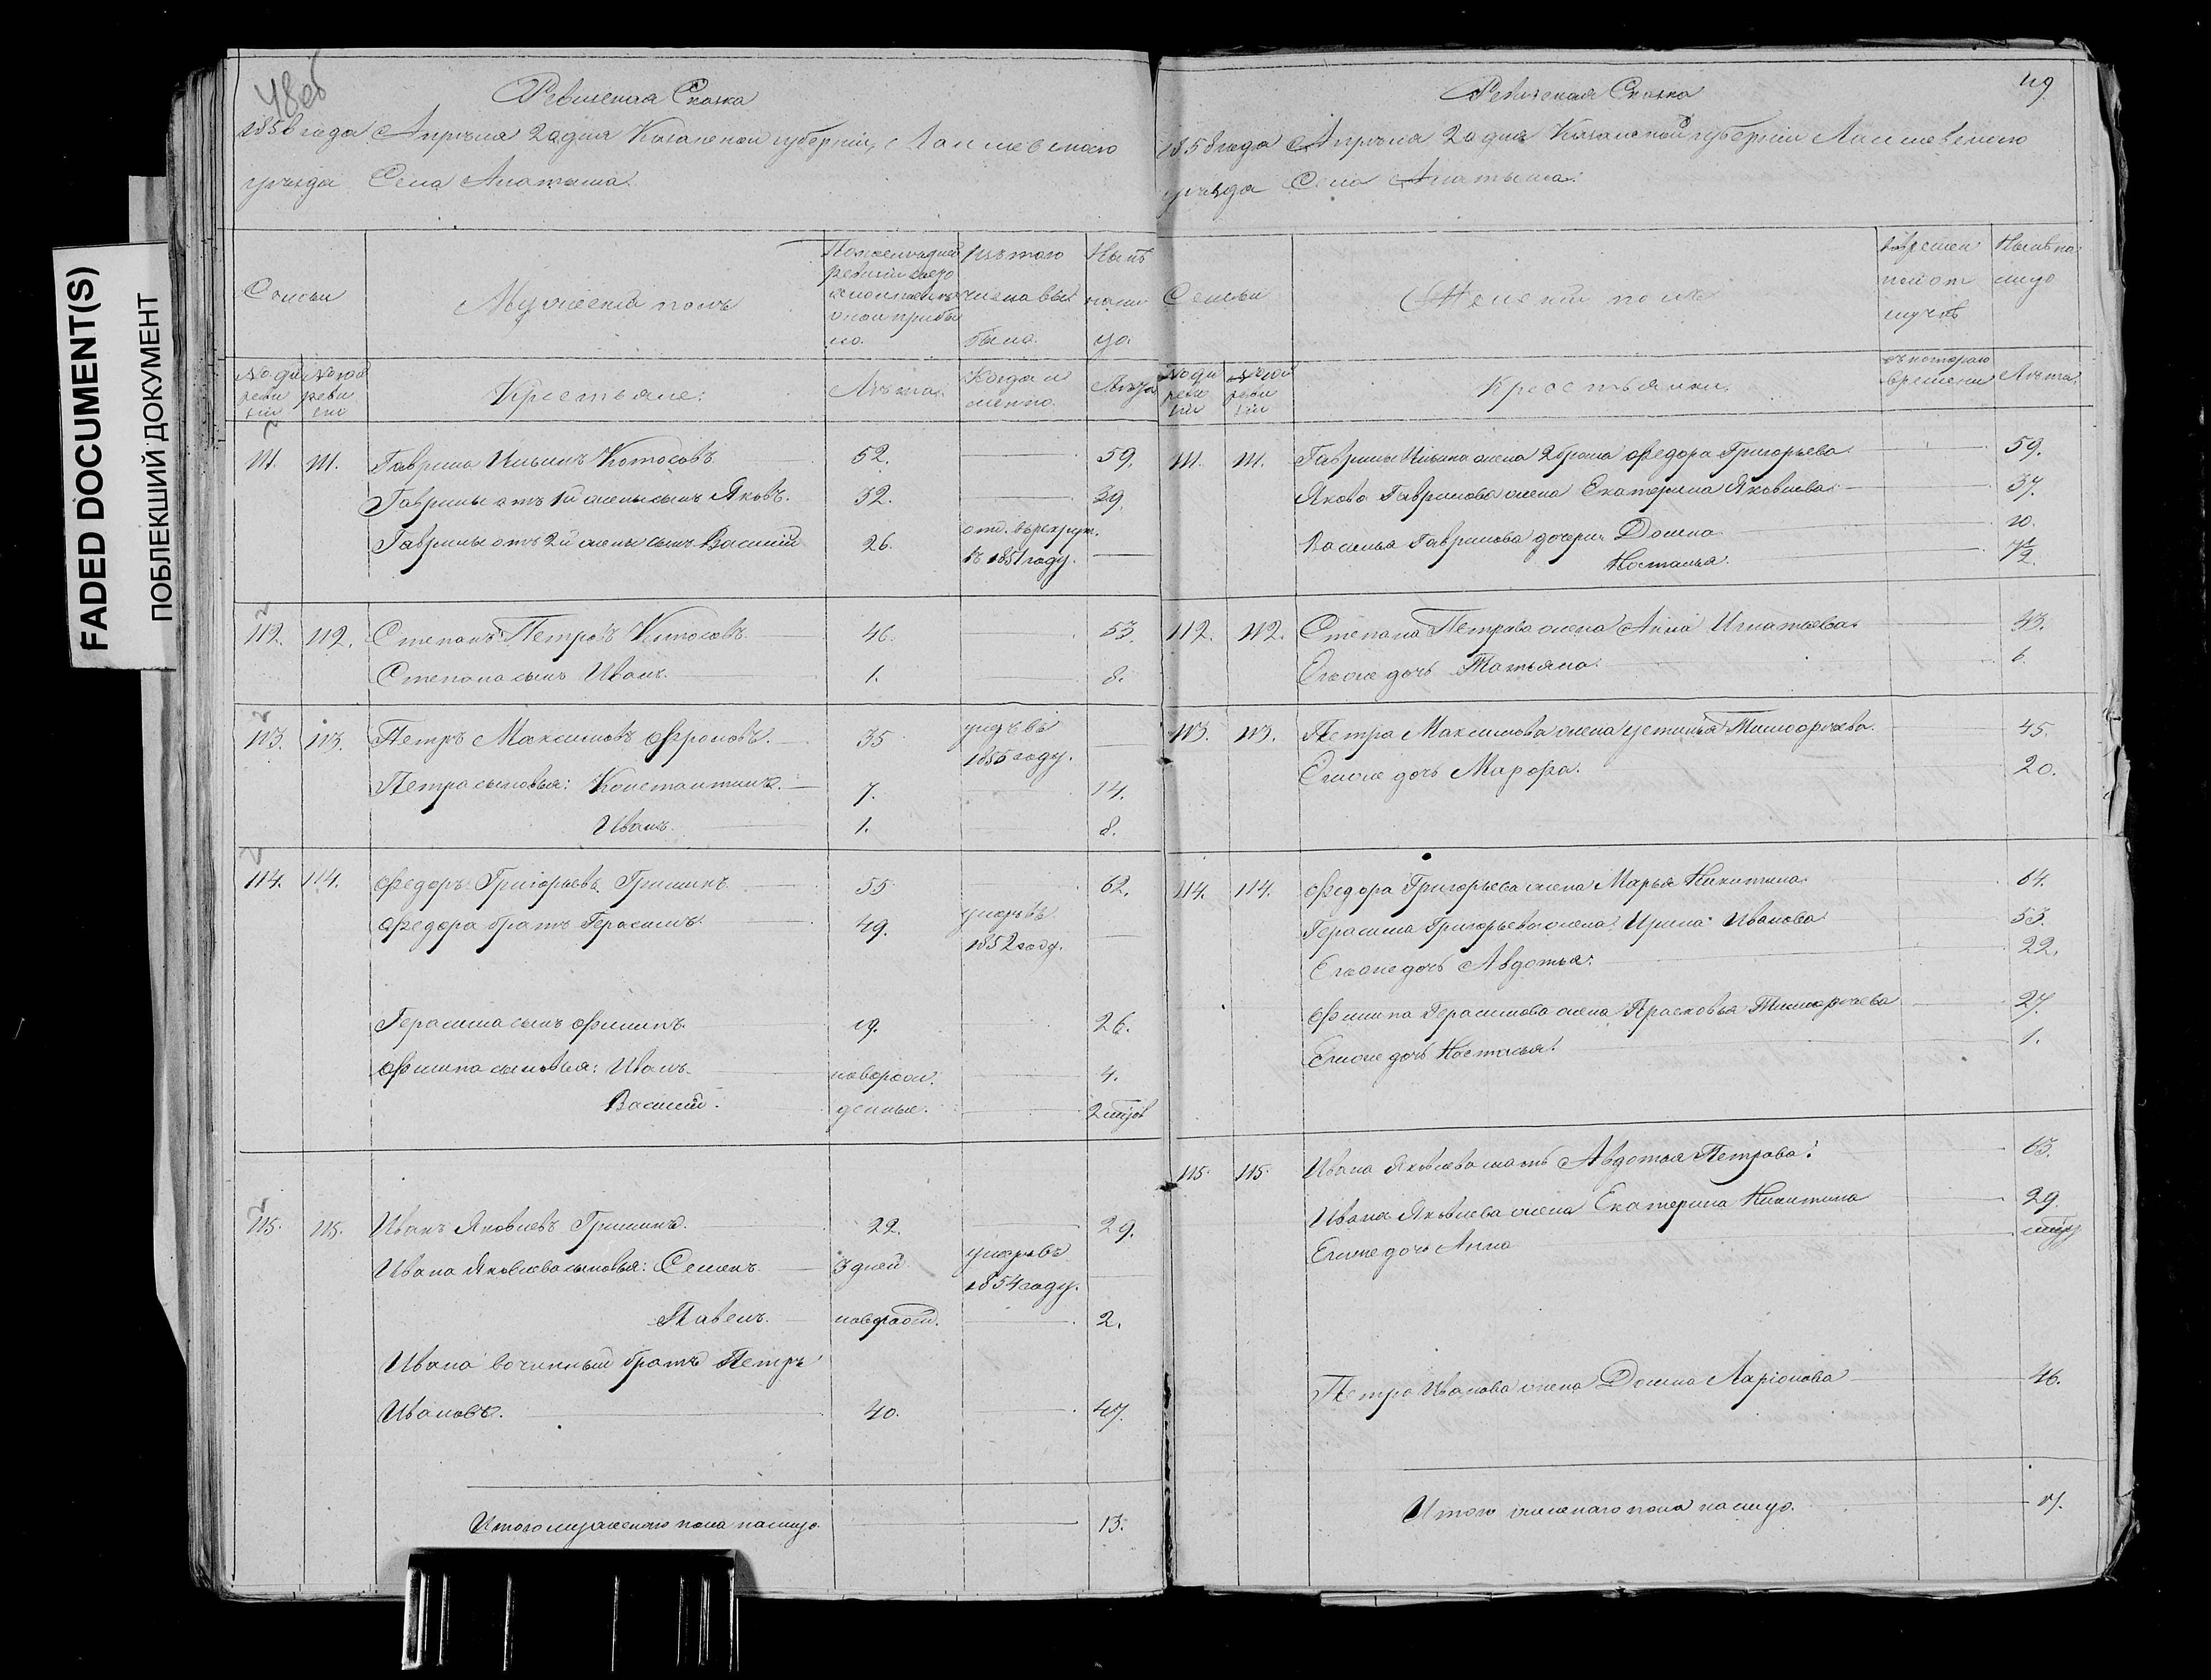 FADED DOCUMENT(S)
ПОБЛЕКШИЙ ДОКУМЕНТ
48об
Ревизская Сказка
1858 года Апрѣля 2а дня Казанской губерніи, Лаишевскаго
уѣзда Села Анатыша.
Семьи
Мужескій полъ
По последней ревизіи состояло и после оной прибыло.
Изъ того числа выбыло.
Нынѣ на лицо.
Крестьяне:
Лѣта.
Когда именно.
Лѣта
111. 111. Гаврила Ильинъ Котосовъ 52. 59.
Гаврилы отъ 1й жены сынъ Яковъ. 32. 39.
Гаврилы отъ 2й жены сынъ Василій 26. отд. въ рекрут. въ 1851 году.
112. 112. Степанъ Петровъ Котосовъ 46. 53.
Степана сынъ Иванъ. 1. 8.
113. 113. Петръ Максимовъ Фроловъ. 35 умеръ въ 1855 году.
Петра сыновья: Константинъ. 7. 14.
Иванъ. 1. 8.
114. 114. Федоръ Григорьевъ Гришинъ 55 62.
Федора братъ Герасимъ. 49. умеръ въ 1852 году.
Герасима сынъ Филипъ. 19. 26.
Филипа сыновья: Иванъ. новорож. 4.
Василій. денные. 2
115. 115. Иванъ Яковлевъ Гришинъ. 22. 29.
Ивана Яковлева сыновья: Семенъ 3 дней умеръ въ 1854 году.
Павелъ. новорож. 2.
Ивана вочинный братъ Петръ
Ивановъ. 40. 47.
Итого мужескаго пола на лицо. 13.
49
Ревизская Сказка
1858 года Апрѣля 2а дня Казанской губерніи Лаишевскаго
уѣзда Села Анатыша.
Семьи
Женскій полъ
Во временной отлучкѣ
Нынѣ на лицо
Крестьянки.
съ котораго времени
Лѣта.
111. 111. Гаврилы Ильина жена 2 брака Федора Григорьева 59.
Якова Гаврилова жена Екатерина Яковлева 37.
Василья Гаврилова дочери Домна 10.
Настасья. 7½
112. 112. Степана Петрова жена Анна Игнатьева 43.
Ея же дочь Татьяна. 6
113. 113. Петра Максимова жена Устинья Тимофѣева. 45.
Ея же дочь Марфа. 20.
114. 114. Федора Григорьева жена Марья Никитина 64.
Герасима Григорьева жена Ирина Иванова 53.
Ея же дочь Авдотья. 22.
Филипа Герасимова жена Прасковья Тимофѣева 27.
Ея же дочь Настасья. 1.
115. 115. Ивана Яковлева мать Авдотья Петрова 63.
Ивана Яковлева жена Екатерина Никитина 29.
Ея же дочь Анна
Петра Иванова жена Домна Ларіонова 46.
Итого женскаго пола на лицо.